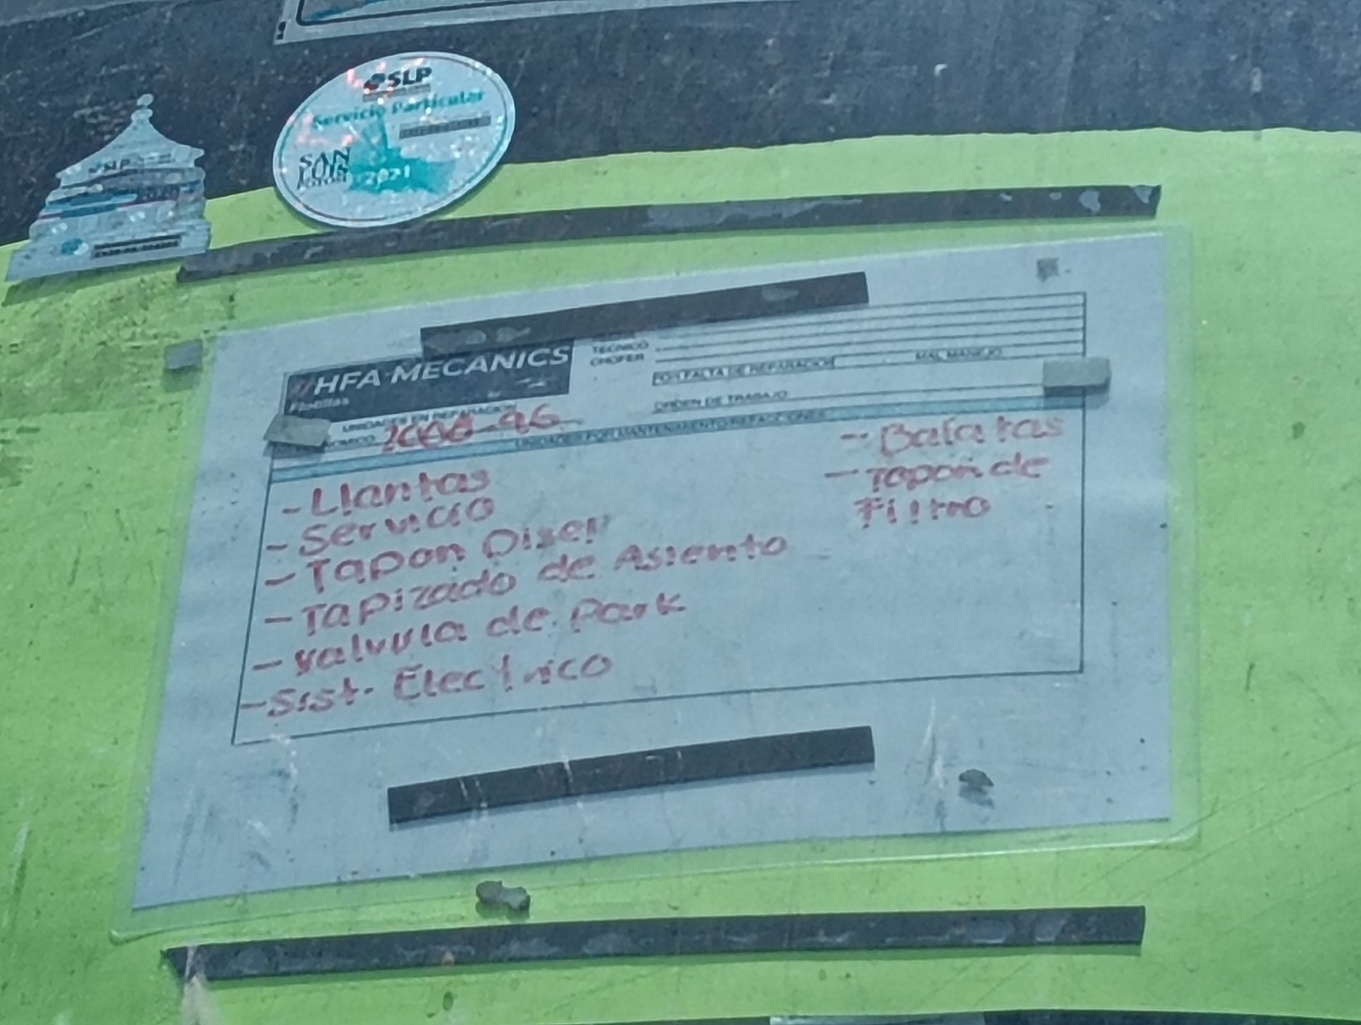 SLP
Servicio Particular
SAN
LUIS
POTOSÍ 2021
SLP
2020
HFA MECANICS
Flotillas
TECNICO
CHOFER
POR FALTA DE REPARACION MAL MANEJO
ORDEN DE TRABAJO
UNIDADES EN REPARACION
UNIDADES POR MANTENIMIENTO/REFACCIONES
- Llantas
- Servicio
- Tapon Disel
- Tapizado de Asiento
- Valvula de Park
- Sist. Electrico
- Balatas
- Tapon de
Filtro